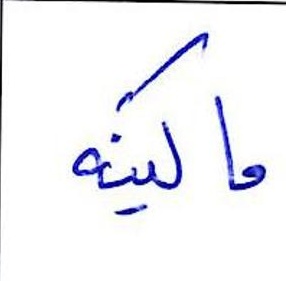 ماكينه